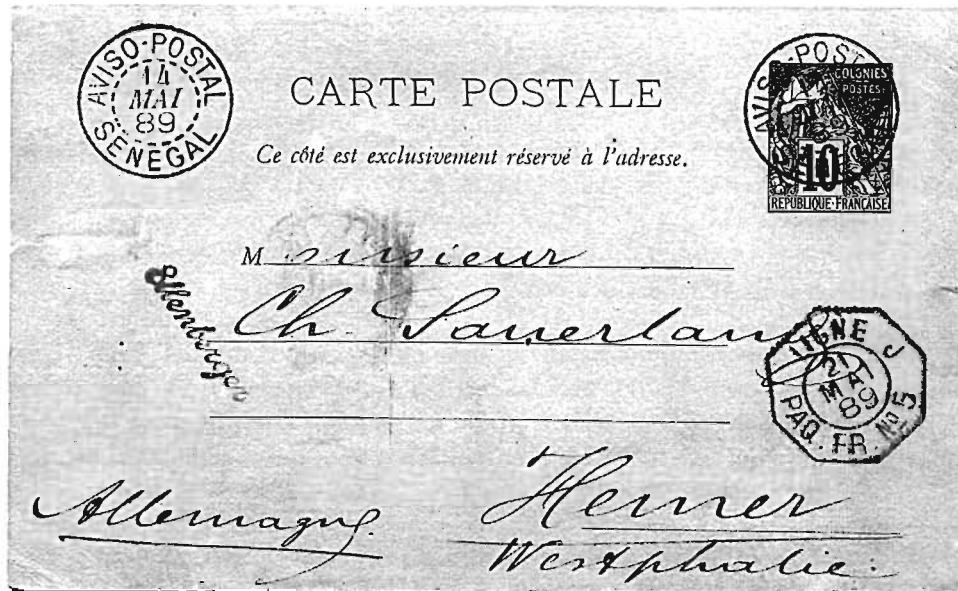 AVISO-POSTAL
14
MAI
89
SÉNÉGAL
CARTE POSTALE
Ce côté est exclusivement réservé à l'adresse.
AVISO-POST
COLONIES
POSTES
10
REPUBLIQUE FRANÇAISE
Monsieur
Ch. Sauerland
LIGNE J
21
MAI
89
PAQ. FR. Nº 5
Hemer
Allemagne
Westphalie.